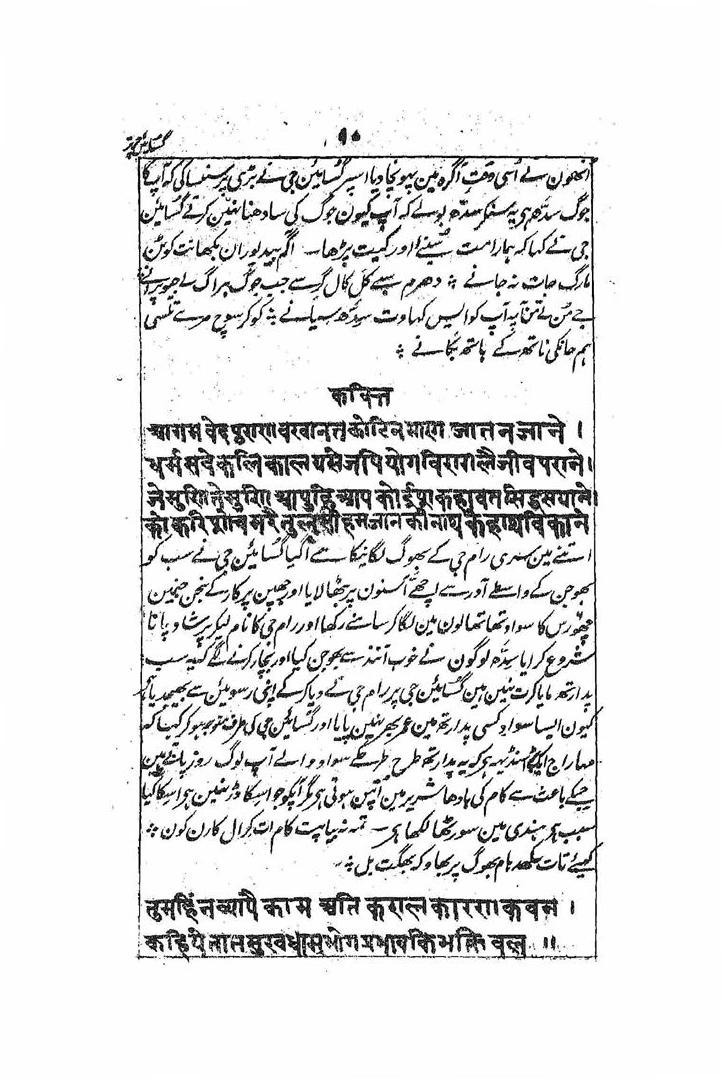 گسائین چرتر
१०
انھون نے اُسی وقت اگرہ مین پہونچا دیا اسپر گسائین جی نے بڑی پرسنسا کی کہ آپ کا
جوگ سدھ ہر یہ سنکر سدھ بولے کہ آپ کیون جوگ کی سادھنا نہین کرتے گسائین
جی نے کہا کہ ہمارا مت سُنیے اور کبت پڑھا۔ اگم بید پوران بکھانت کوٹن
مارگ جات نہ جانے ؛ دھرم سبے کل کال گرسے جب جوگ براگ لے جیو پرانے
جے مُن تے پُن آپہ آپ کو ایس کہاوت سدھ سیانے ؛ کو کر سوچ مرے تلسی
ہم جانکی ناتھ کے ہاتھ بکانے ؛
कवित्त
आगम वेद पुराण वखानत कोटिन मारग जात न जाने ।
धर्म सवे कलि काल ग्रसे जपि योग विराग लै जीव पराने।
जे मुनि ते मुनि आपुहि आप को ईश कहावत सिद्ध सयाने।
को करि शोच मरै तुलसी हम जानकीनाथ के हाथ विकाने
اتنے مین سری رام جی کے بھوگ لگانیکا سمے آگیا گسائین جی نے سب کو
بھوجن کے واسطے آدر سے اچھے آسنون پر بٹھالایا اور چھپن پرکار کے بنجن جنمین
چھؤرس کا سواد تھا تھالون مین لگا کر سامنے رکھا اور رام جی کا نام لیکر پرشاد پانا
شروع کرایا سدھ لوگون نے خوب آنند سے بھوجن کیا اور بچار کرنے لگے کہ یہ سب
پدارتھ مایا کرت نہین ہین گسائین جی پر رام جی نے دیا کر کے اپنی رسوئین سے بھیجدیا ہر
کیون ایسا سواد کسی پدارتھ مین عمر بھر نہین پایا اور گسائین جی کی طرف متوجہ ہو کر کہا کہ
مہاراج ایک سندیہہ ہر کہ یہ پدارتھ طرح طرح کے سواد والے آپ لوگ روز پاتے ہین
جسکے باعث سے کام کی بادھا شریر مین اُتپن ہوتی ہر مگر آپکو جو اسکا ڈر نہین ہر اسکا کیا
سبب ہر ہندی مین سورٹھا لکھا ہر۔ تمہ نہ بیاپت کام ات کرال کارن کون ؛
کہیے تات سکھد ہام بھوگ پربھاو کہ بھگت بل ؛
तुमहिं न व्यापै काम अति कराल कारण कवन ।
कहिये तात सुखधाम भोग प्रभाव कि भक्ति वल ॥